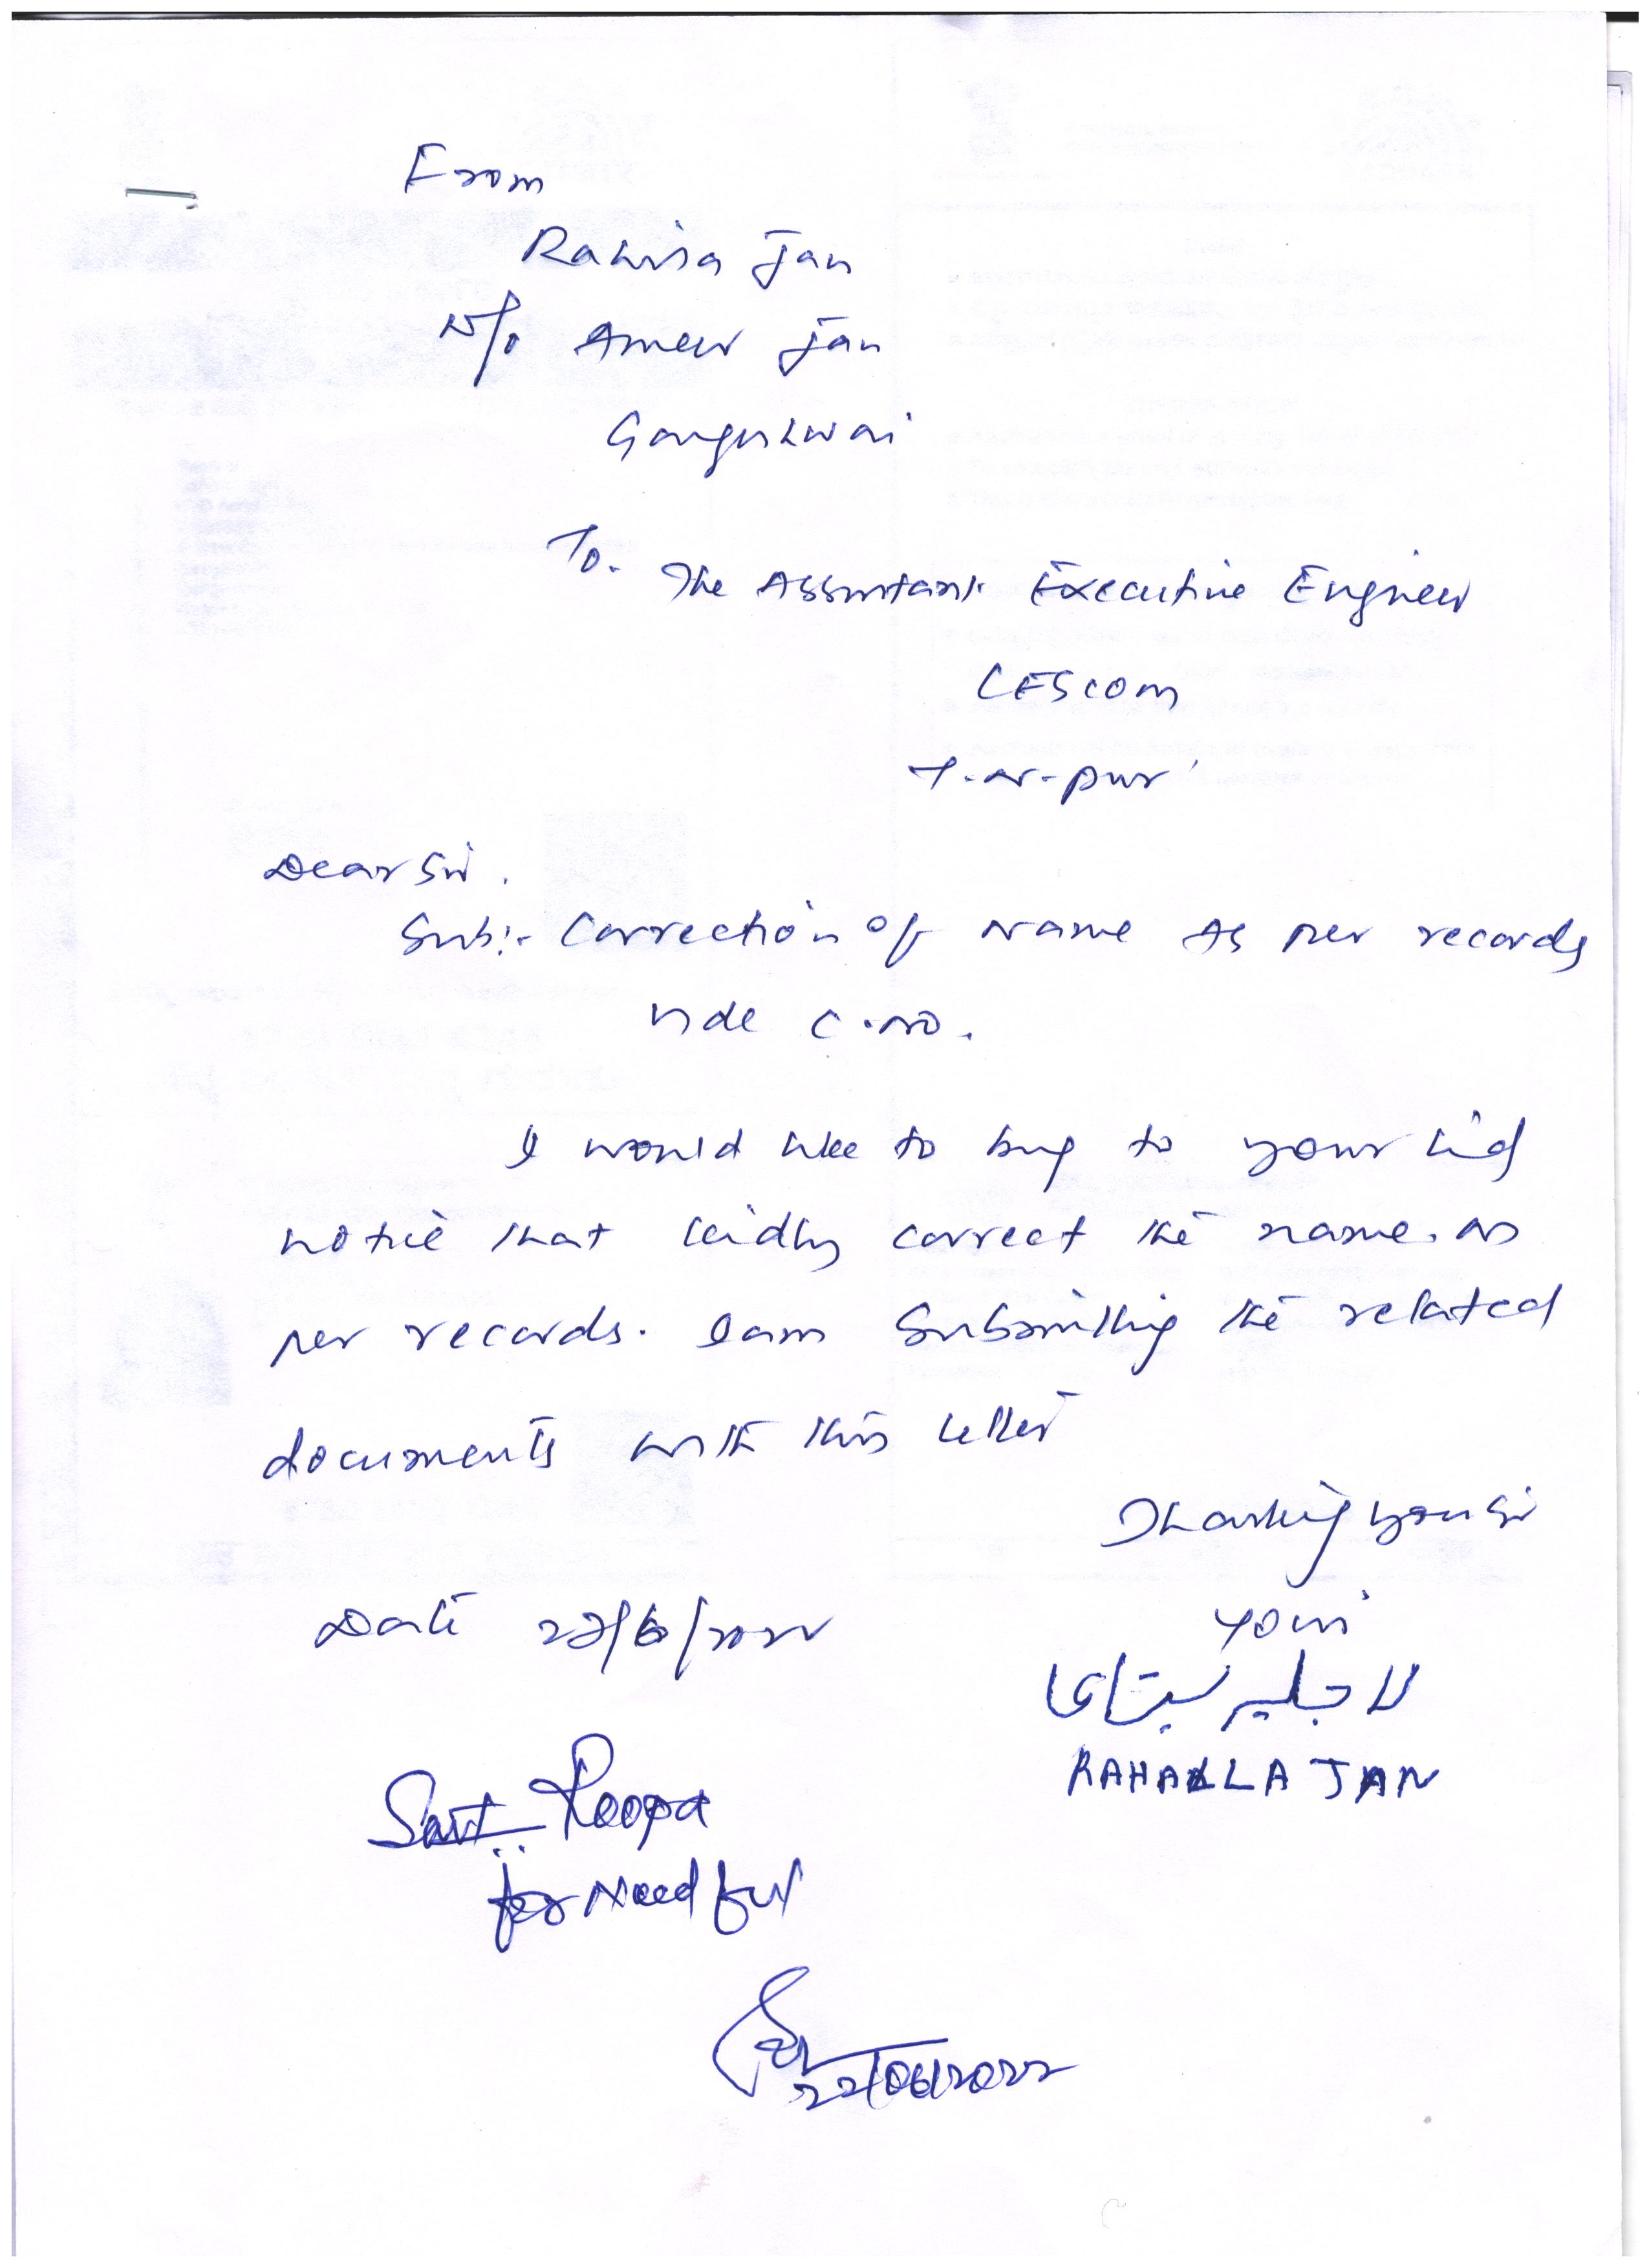 From
Jan
W/o Ameer Jan
To.
The Assistant Executive Engineer
CESCOM
Dear Sir.
Sub:- Correction of Name As per records
vide C.no.
I would like to bring to your kind
notice that kindly correct the name. as
per records. I am Submitting the related
documents with this letter
Thanking you Sir
Date
Your
RAHALLA JAN
Smt. Roopa
for Needful
22/06/2022